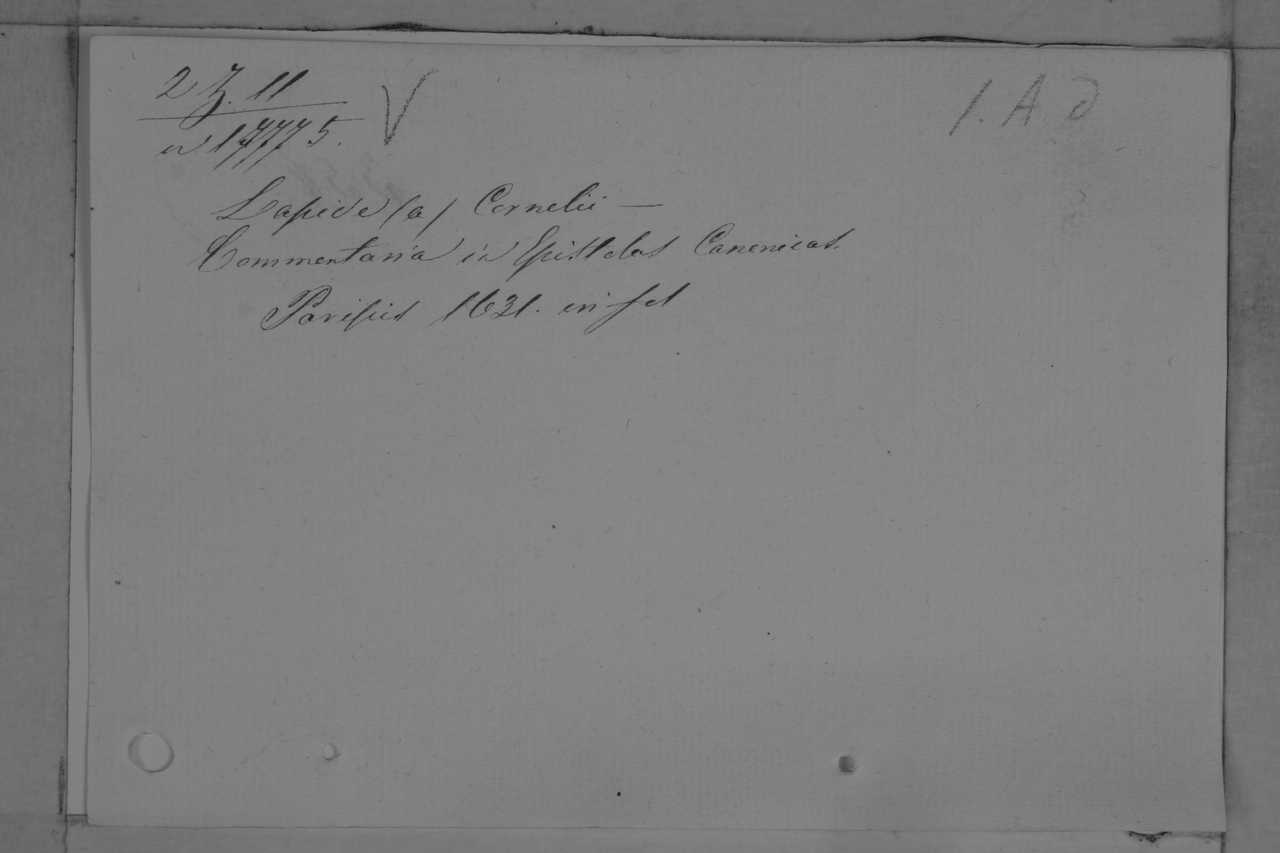 2 Z. 11 V 1. A d
17775.
Lapide (a) Cornelii —
Commentaria in Epistolas Canonicas.
Parisiis 1631. in fol